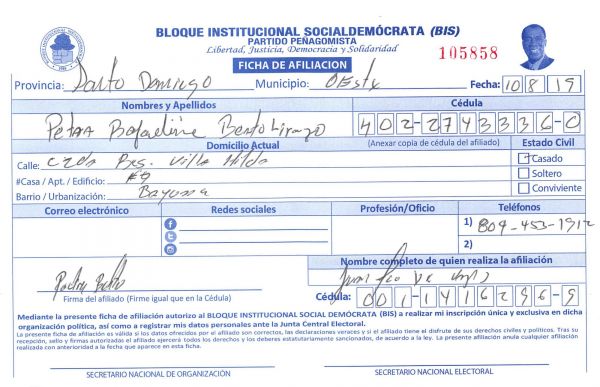 BLOQUE INSTITUCIONAL SOCIALDEMÓCRATA (BIS)
PARTIDO PEÑAGOMISTA
Libertad, Justicia, Democracia y Solidaridad
105858
FICHA DE AFILIACION
Provincia: Santo Domingo Municipio: OEste Fecha: 10 8 19
Nombres y Apellidos Cédula
Petra Bofaeline 402-2743336-0
Domicilio Actual (Anexar copia de cédula del afiliado) Estado Civil
Calle: Villa Hilda Casado
#Casa / Apt. / Edificio: #9 Soltero
Barrio / Urbanización: Bayona Conviviente
Correo electrónico Redes sociales Profesión/Oficio Teléfonos
1) 809-453-1912
2)
Nombre completo de quien realiza la afiliación
Juan
Firma del afiliado (Firme igual que en la Cédula) Cédula: 001-1416296-9
Mediante la presente ficha de afiliación autorizo al BLOQUE INSTITUCIONAL SOCIAL DEMÓCRATA (BIS) a realizar mi inscripción única y exclusiva en dicha
organización política, así como a registrar mis datos personales ante la Junta Central Electoral.
La presente ficha de afiliación es válida si los datos ofrecidos por el afiliado son correctos, las declaraciones veraces y si el afiliado tiene el disfrute de sus derechos civiles y políticos. Tras su
recepción, sello y firmas autorizadas el afiliado ejercerá todos los derechos y los deberes estatutariamente sancionados, de acuerdo a la ley. La presente afiliación anula cualquier afiliación
realizada con anterioridad a la fecha que aparece en esta ficha.
SECRETARIO NACIONAL DE ORGANIZACIÓN SECRETARIO NACIONAL ELECTORAL